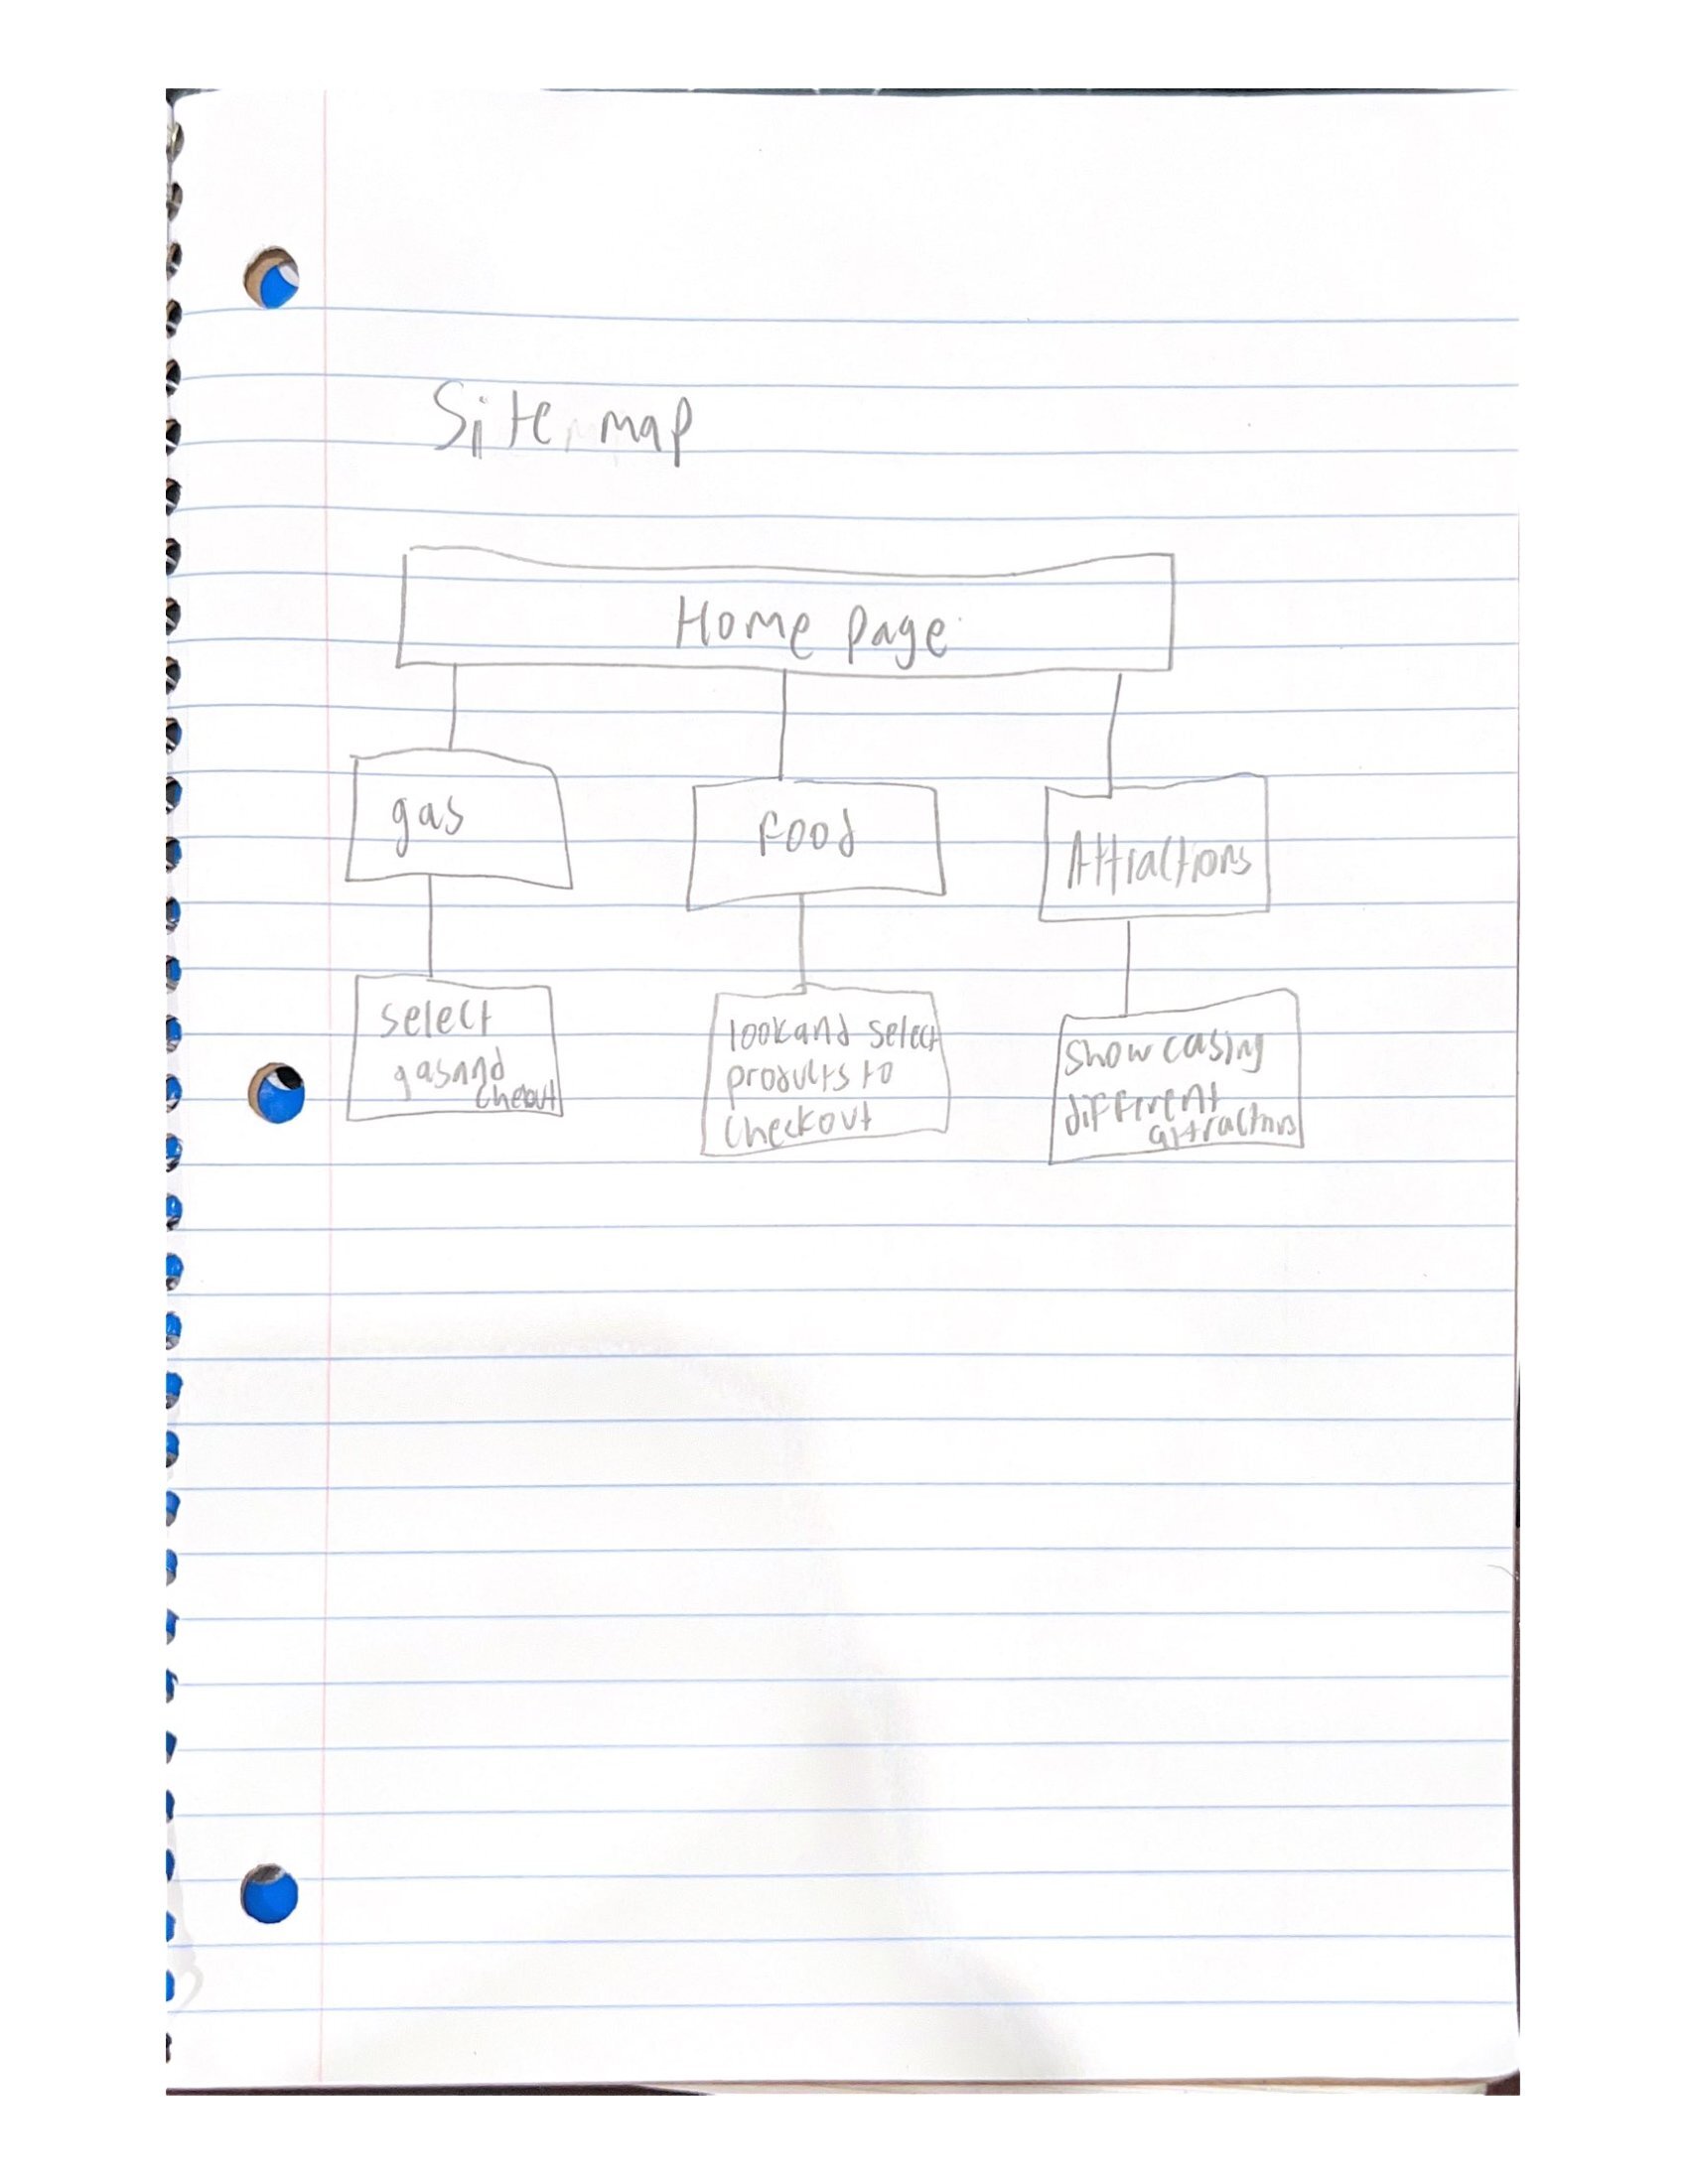 Site map
Home page
gas
Food
Attractions
select
gas and
cheout
look and select
products to
checkout
show casing
different
attractions